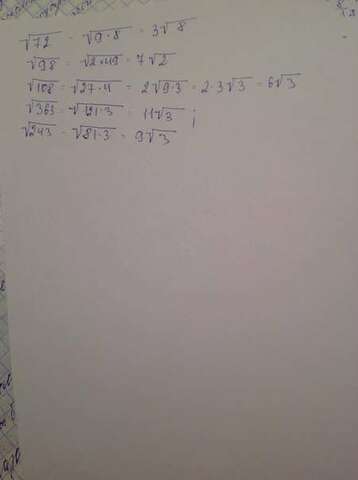 √72 = √9·8 = 3√8
√98 = √2·49 = 7√2
√108 = √27·4 = 2√9·3 = 2·3√3 = 6√3
√363 = √121·3 = 11√3 ;
√243 = √81·3 = 9√3